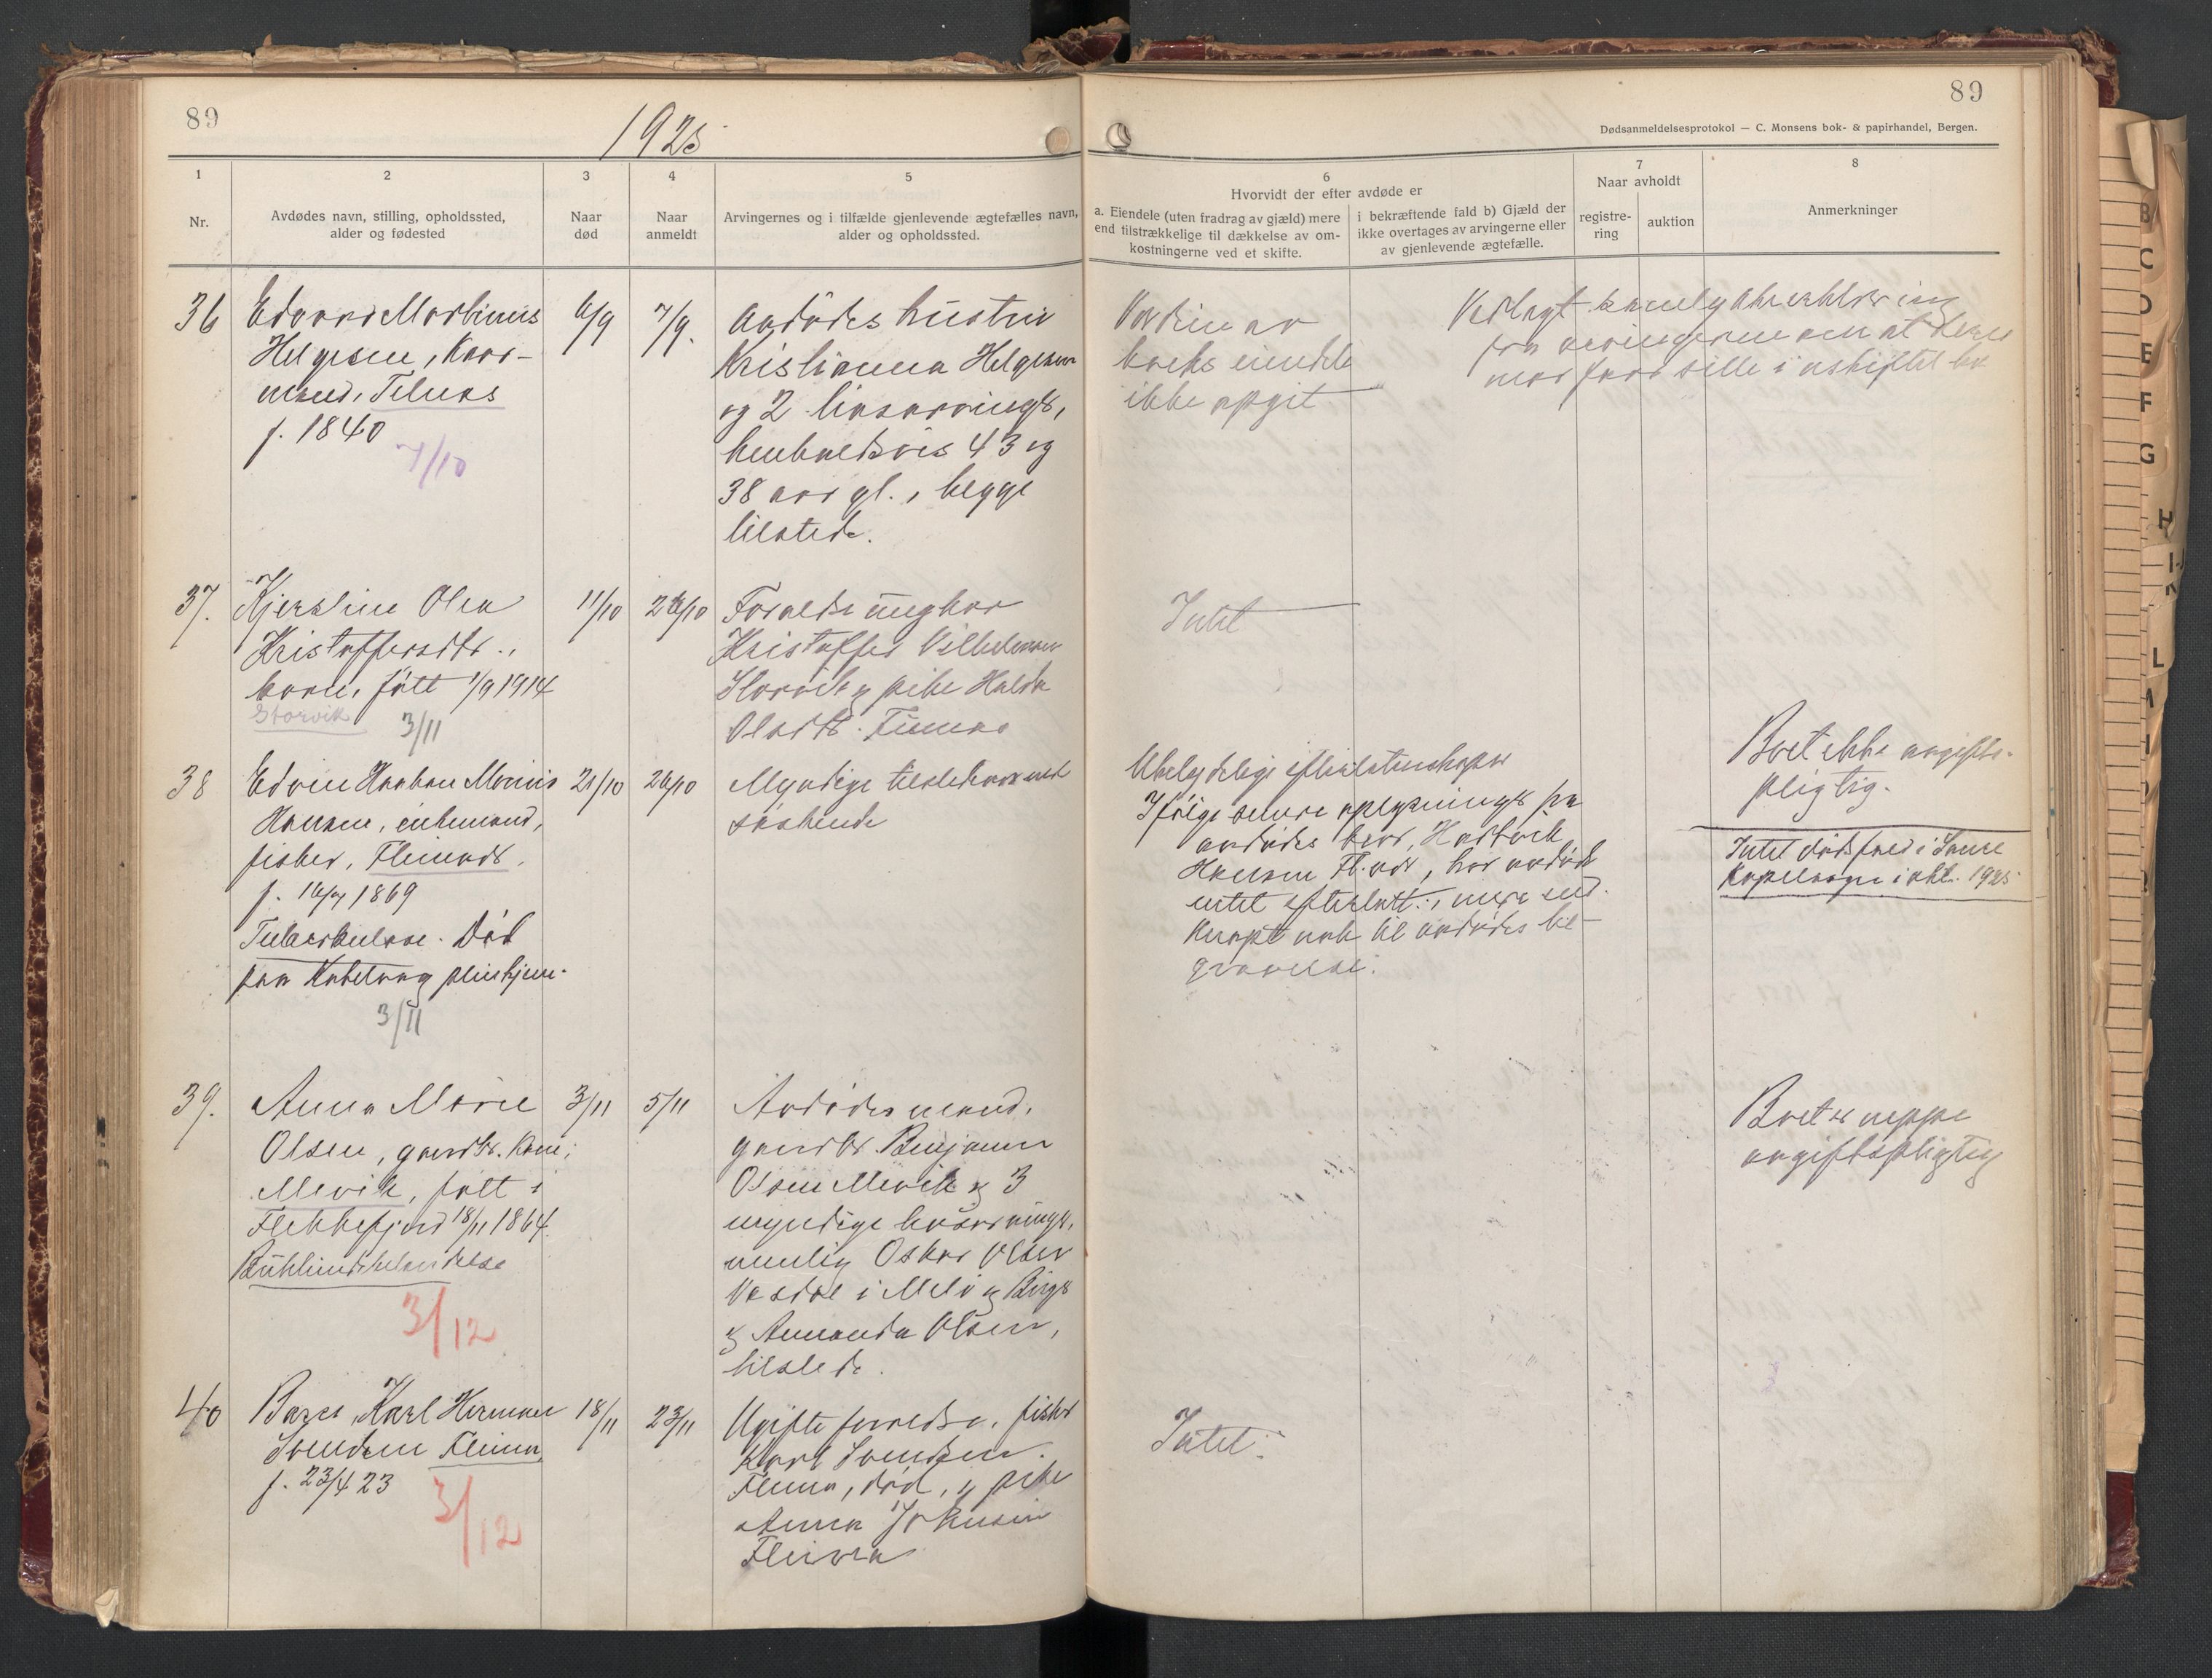 89
1925
89
Dødsanmeldelsesprotokol — C. Monsens bok- & papirhandel, Bergen.
1
Nr.
2
Avdødes navn, stilling, opholdssted,
alder og fødested
3
Naar
død
4
Naar
anmeldt
5
Arvingernes og i tilfælde gjenlevende ægtefælles navn,
alder og opholdssted.
6
Hvorvidt der efter avdøde er
a. Eiendele (uten fradrag av gjæld) mere
end tilstrækkelige til dækkelse av om-
kostningerne ved et skifte.
i bekræftende fald b) Gjæld der
ikke overtages av arvingerne eller
av gjenlevende ægtefælle.
7
Naar avholdt
registre-
ring
auktion
8
Anmerkninger
36
Edvard Martinus
Helgesen, Kaar-
mand,
f. 1840
7/10
6/9
7/9.
Avdødes hustru
Kristianna Helgesen
og 2 livsarvinger,
henholdsvis 43 og
38 aar gl., begge
tilstede.
Værdien av
boets eiendele
ikke opgit
fra arvingerne om at deres
mor faar sitte i uskiftet bo
37.
Kjerstine Olea
Kristoffersdtr.,
barn, født 1/9 1914
Storvik
3/11
11/10
26/10
Forældre ungkar
Kristoffer Vilhelmsen
Storvik og pike Hulda
Olsdtr.
Intet
38
Edvin Haakon
Hansen, enkemand,
fisker,
f. 1869
Tuberkulose. Død
paa Kabelvaag pleiehjem.
3/11
21/10
26/10
Myndige tilstedeværende
søskende
Ubetydelige efterlatenskaper
Ifølge senere oplysninger fra
avdødes bror,
Hansen, har avdøde
intet efterlatt, mere end
knapt nok til avdødes be-
gravelse.
Boet ikke avgifts-
pligtig.
Intet dødsfald i
i okt. 1925
39.
Anna Marie
Olsen, gaardbr. kone,
Mevik, født i
Flekkefjord 18/11 1864.
3/12
3/11
5/11
Avdødes mand,
gaardbr. Benjamin
Olsen Mevik og 3
myndige livsarvinger,
nemlig Oskar Olsen
i og
og Amanda Olsen,
tilstede.
Boet er neppe
avgiftspligtig
40
Barn, Karl Herman
Svendsen
f. 23/4 23
3/12
18/11
23/11
Ugifte forældre, fisker
Karl Svendsen
død, og pike
Anna Johnsen
Intet.
B
C
D
E
F
G
H
L